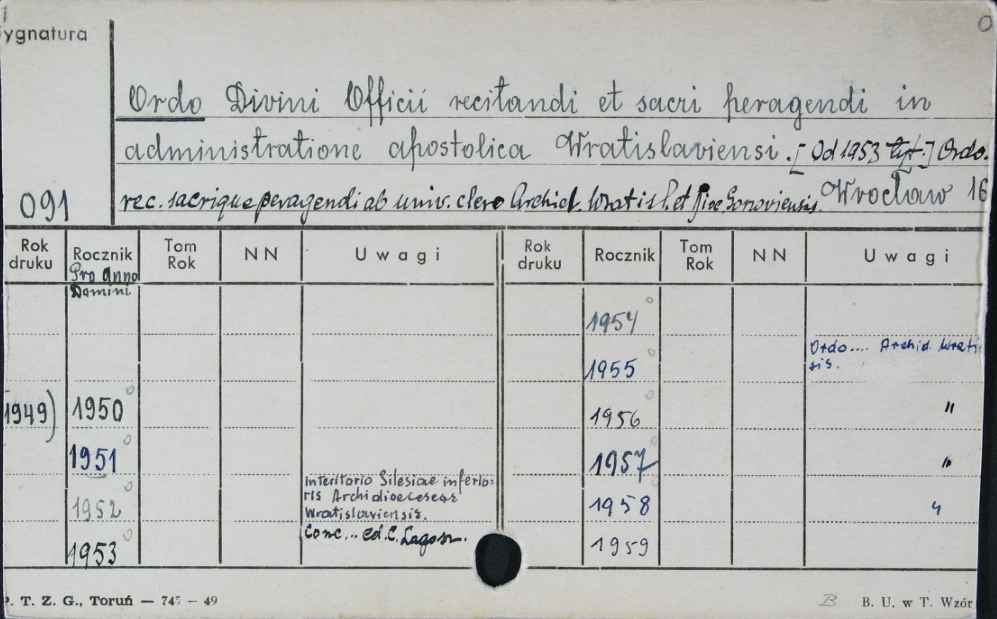 ygnatura
Ordo Divini Officii recitandi et sacri peragendi in
administratione apostolica Wratislaviensi. [Od 1953 tyt.] Ordo.
rec. sacrique peragendi ab univ. clero Archid. Wratisl. et Wrocław 16
091
Rok druku Rocznik Tom Rok NN Uwagi Rok druku Rocznik Tom Rok NN Uwagi
Pro Anno
Domini
1954
1955 Ordo.... Archid. Wrati
sis.
1949) 1950 1956 "
1951 1957 "
1952 In territorio Silesiae inferio-
ris Archidioeceseos
Wratislaviensis. 1958 "
1953 Conc... ed. C. 1959
P. T. Z. G., Toruń — 745 — 49 B B. U. w T. Wzór